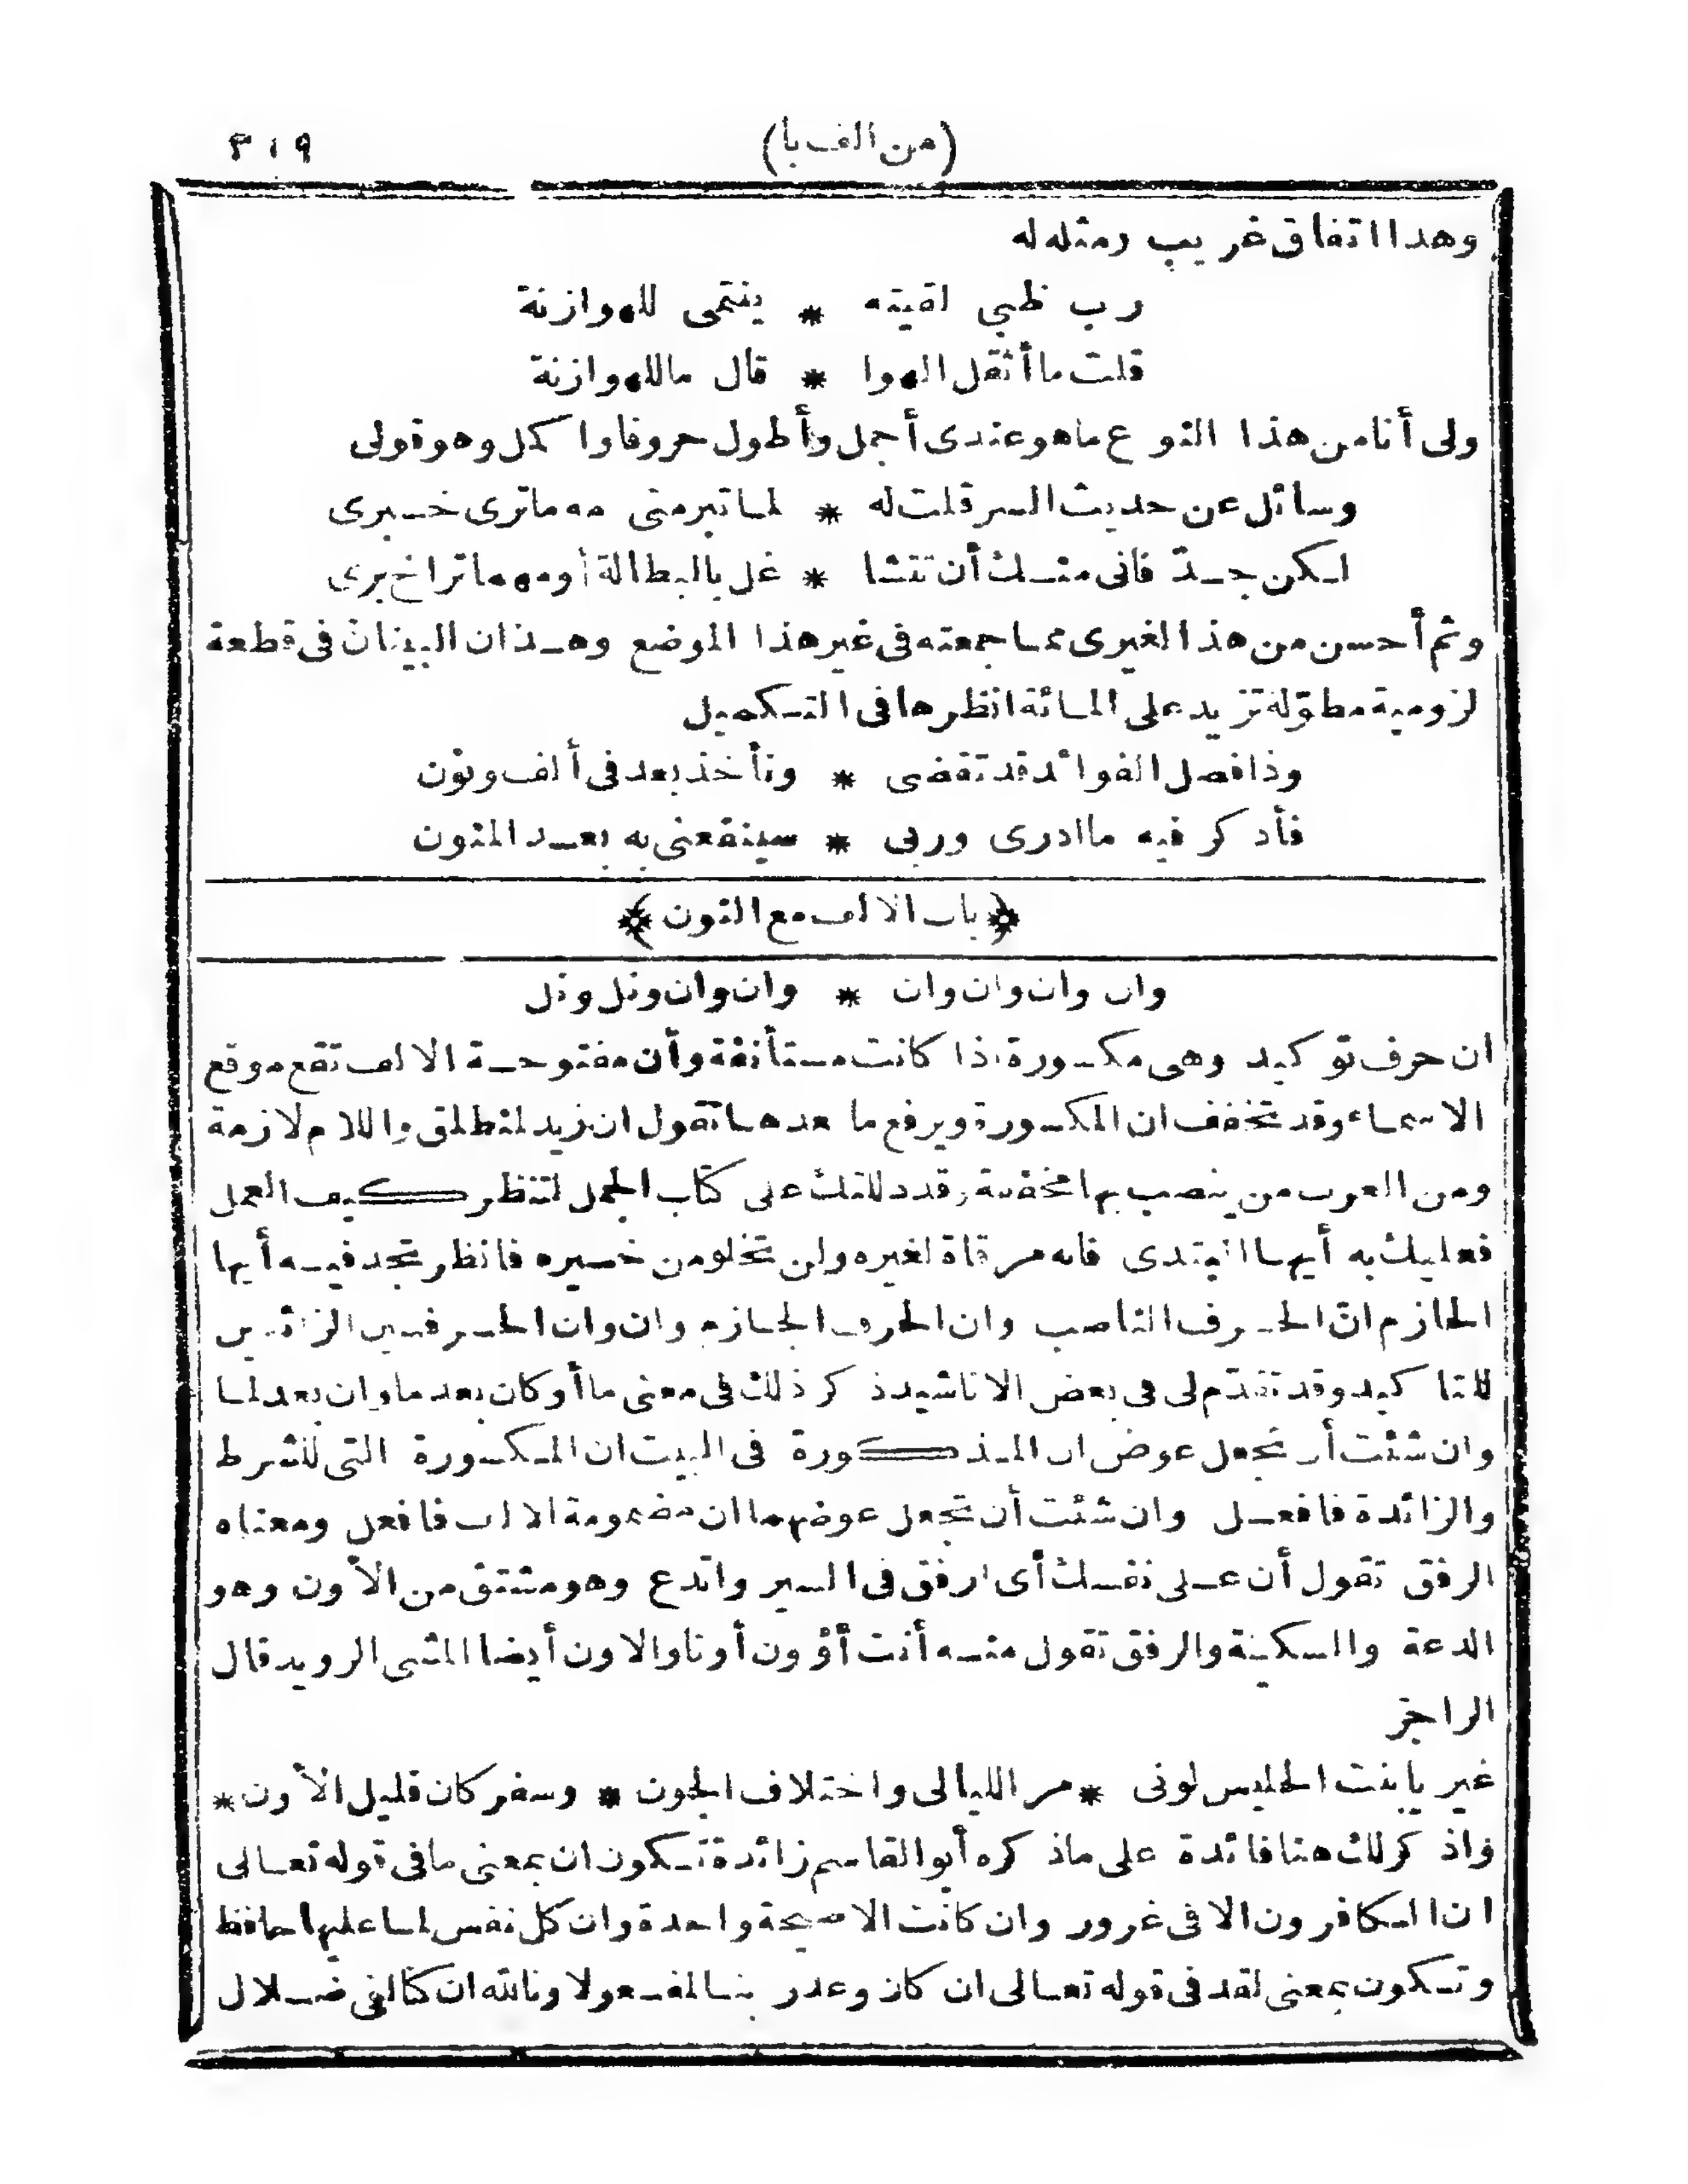 (من الف با) ٣١٩
وهذا اتفاق غريب ومثله له
رب ظبي لقيته * ينتمى للهوازنة
قلت ما أثقل الهوا * قال ما للهوازنة
ولى أنا من هذا النوع ما هو عندى أجمل وأطول حروفا وا كمل وهو قولى
وسائل عن حديث السر قلت له * لما تبرمنى مه ما ترى خبرى
لكن جد فانى منك أن تنشا * غل بالبطالة أو مهما تراخ برى
وثم أحسن من هذا لغيرى مما جمعته فى غير هذا الموضع وهذان البيتان فى قطعة
لزومية مطوّلة تزيد على المائة انظرها فى التكميل
وذا فصل الفوائد قد تقضى * ونأخذ بعد فى ألف ونون
فأذكر فيه ما ادرى وربى * سينفعنى به بعد المنون
﴿باب الالف مع النون﴾
وان وان وان وان * وان وان ونل ونل
ان حرف توكيد وهى مكسورة اذا كانت مستأنفة وأن مفتوحة الالف تقع موقع
الاسماء وقد تخفف ان المكسورة ويرفع ما بعدها تقول ان زيد لمنطلق واللام لازمة
ومن العرب من ينصب بها مخففة وقد دللتك على كتاب الجمل لتنظر كيف العمل
فعليك به أيها المبتدى فانه مرقاة لغيره ولن تخلو من خيره فانظر تجد فيه أيها
الحازم انّ الحرف الناصب وان الحرف الجازم وان وان الحرفين الزائدين
للتا كيد وقد تقدّم لى فى بعض الاناشيد ذ كر ذلك فى معنى ما أو كان بعد ما وان بعد لما
وان شئت أن تجعل عوض ان المذكورة فى البيت ان المكسورة التى للشرط
والزائدة فافعل وان شئت أن تجعل عوضهما ان مضمومة الالف فافعل ومعناه
الرفق تقول أن على نفسك أى ارفق فى السير واتدع وهو مشتق من الأون وهو
الدعة والسكينة والرفق تقول منه أنت أؤون أونا والاون أيضا المشى الرويد قال
الراجز
غير يا بنت الحليس لونى * مر الليالى واختلاف الجون * وسفر كان قليل الأون *
واذ كر لك هنا فائدة على ماذ كره أبو القاسم زائدة تكون ان بمعنى ما فى قوله تعالى
ان الكافرون الا فى غرور وان كانت الا صيحة واحدة وان كل نفس لما عليها حافظ
وتكون بمعنى لقد فى قوله تعالى ان كان وعد ربنا لمفعولا وتالله ان كنا لفى ضلال